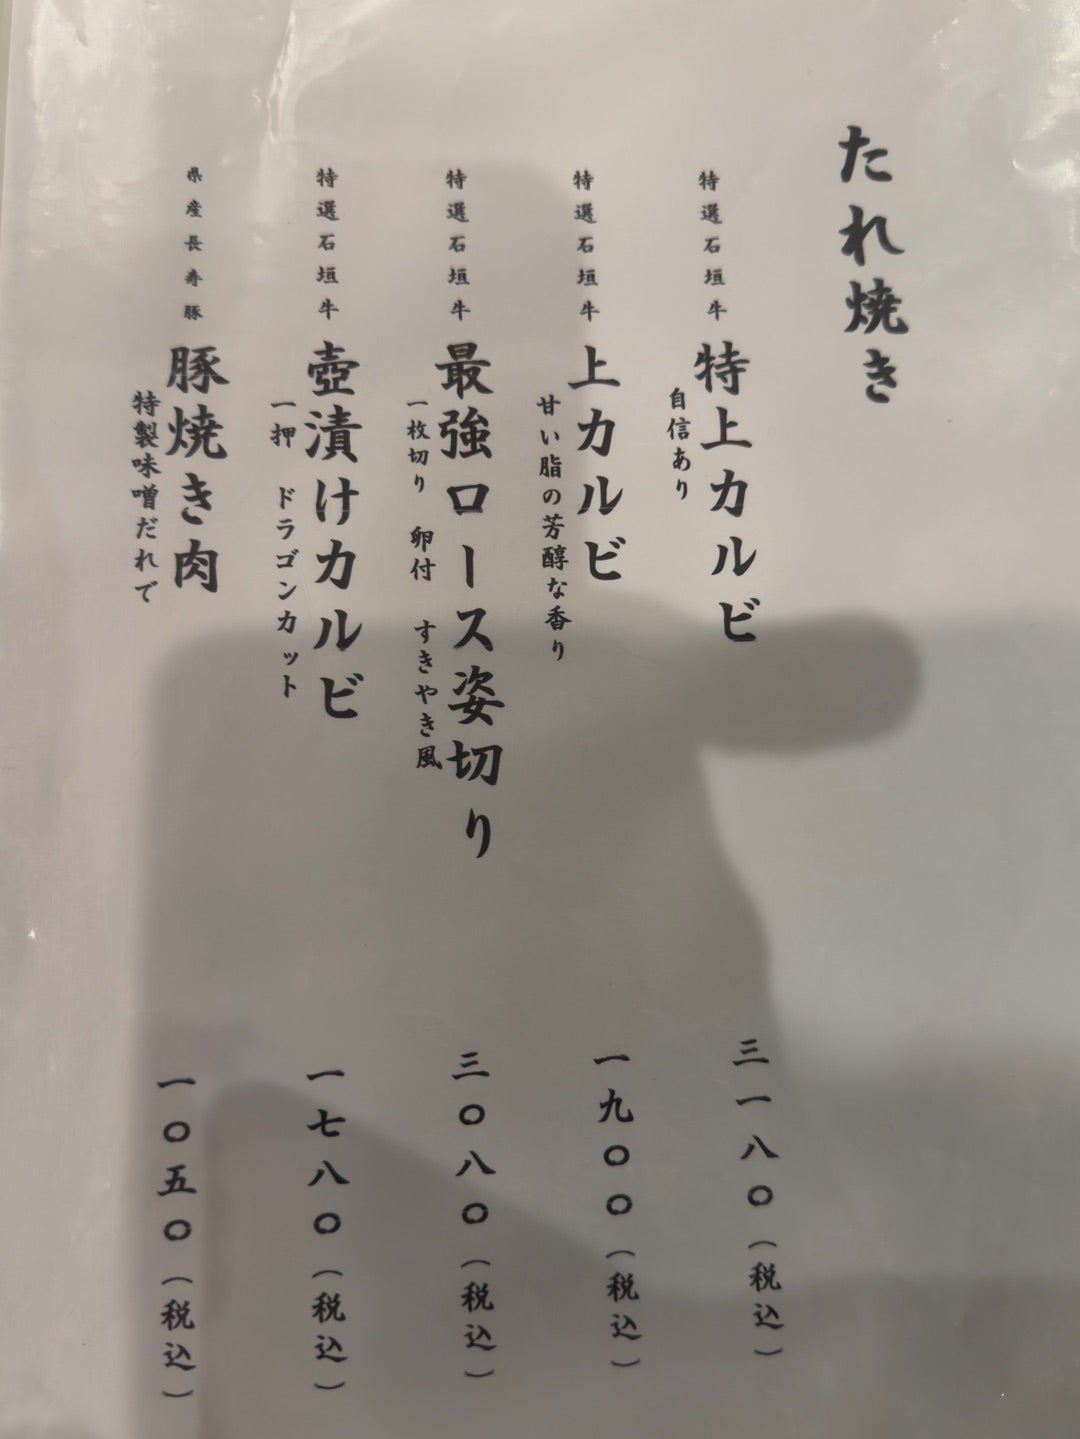 たれ焼き
特選石垣牛 特上カルビ 三一八〇(税込)
自信あり
特選石垣牛 上カルビ 一九〇〇(税込)
甘い脂の芳醇な香り
特選石垣牛 最強ロース姿切り 三〇八〇(税込)
一枚切り 卵付 すきやき風
特選石垣牛 壺漬けカルビ 一七八〇(税込)
一押 ドラゴンカット
県産長寿豚 豚焼き肉 一〇五〇(税込)
特製味噌だれで